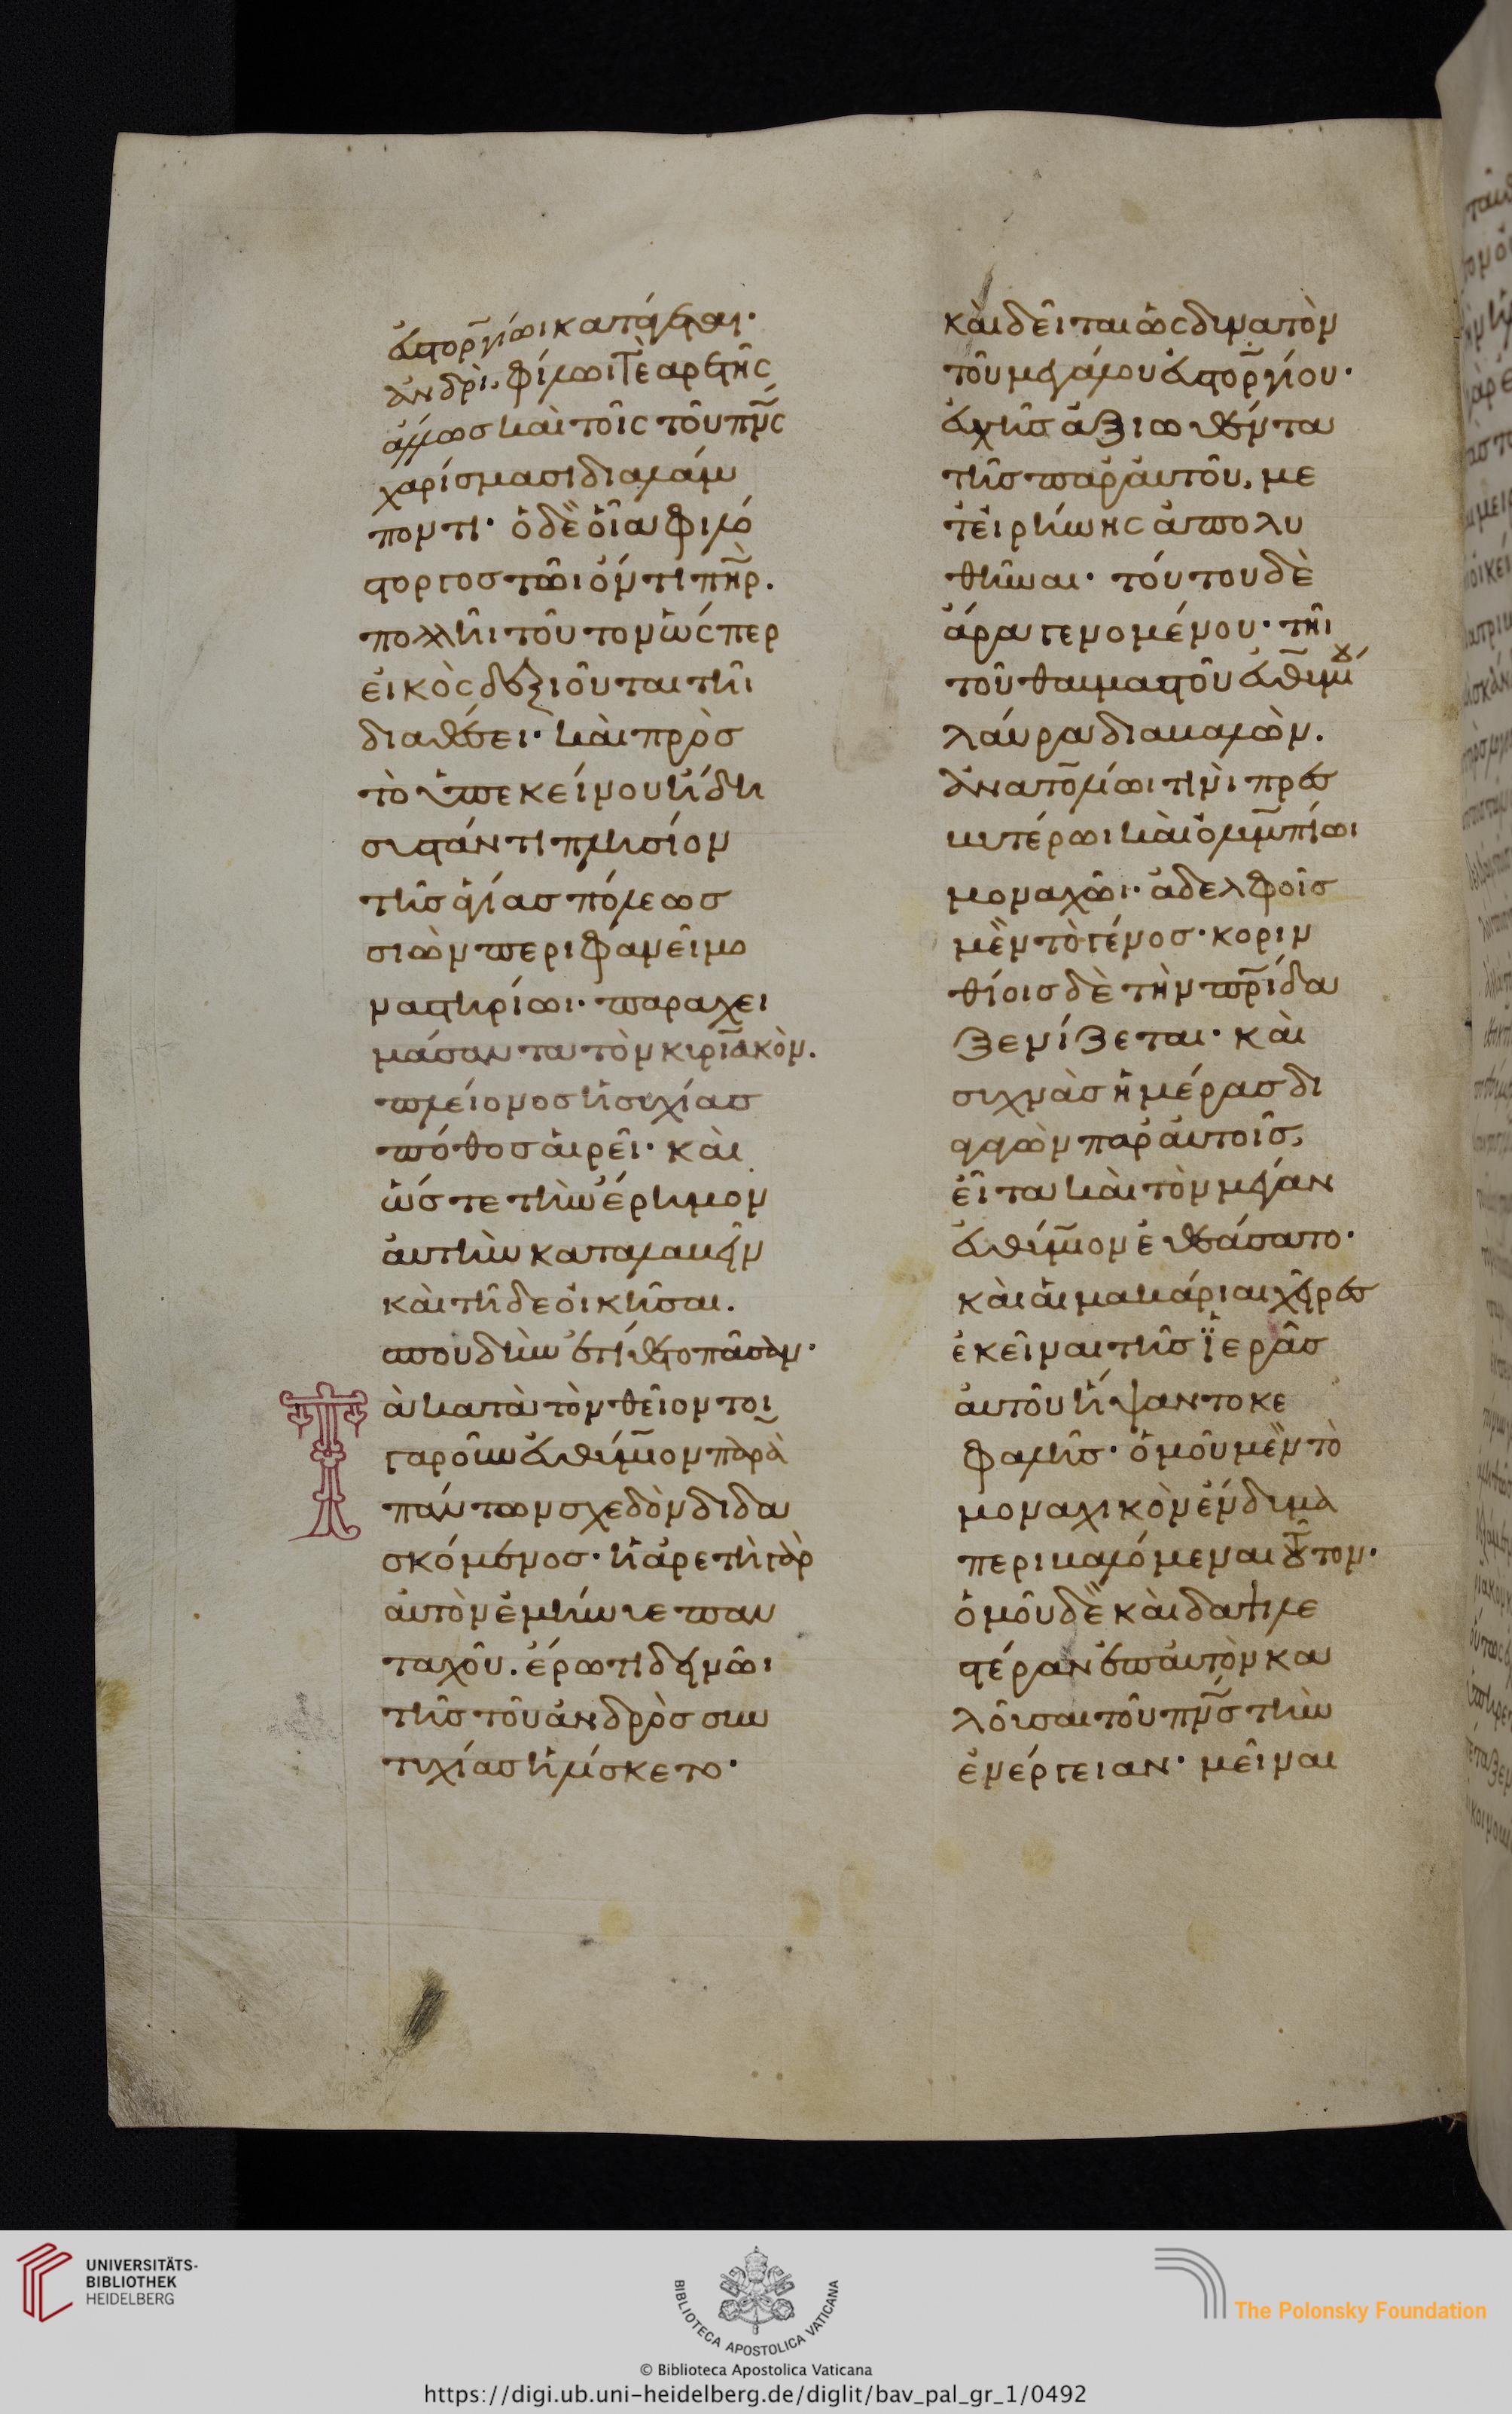 εὐστοργίωι κατάγεται·
ἀνδρὶ, φίλωι τὲ ἀρετῆς
ἄλλως καὶ τοῖς τοῦ πν̅ς
χαρίσμασι διαλάμ
ποντι· ὁ δὲ οἷα φιλό
στοργος τῶι ὄντι πη̅ρ.
πολλῆι τοῦτον ὥσπερ
εἰκὸς δεξιοῦται τῆι
διαθέσει· καὶ πρὸς
τὸ ὑπ' ἐκείνου ἤδη
συστάντι πλησίον
τῆς ἁγίας πόλεως
σιὼν περιφανεῖ μο
ναστηρίωι· παραχει
μάσαντα τὸν κυριακὸν.
πλείονος ἡσυχίας
πόθος αἱρεῖ· καὶ
ὥστε τὴν ἔρημον
αὐτὴν καταλαβεῖν
κἀκεῖ
σπουδὴν ἐτίθετο πᾶσαν·
ὰ κατὰ τὸν θεῖον τοι
γαροῦν εὐθύμιον παρὰ
πάντων σχεδὸν διδα
σκόμενος· ἡ ἀρετὴ γὰρ
αὐτὸν ἐμήνυε παν
ταχοῦ. ἔρωτι δεινῶι
τῆς τοῦ ἀνδρὸς συν
τυχίας ἡλίσκετο·
καὶ δεῖται ὡς δυνατὸν
τοῦ μεγάλου εὐστοργίου·
εὐχῆς ἀξιωθέντα
τῆς παρ' αὐτοῦ, με
τ' εἰρήνης ἀπολυ
θῆναι· τούτου δὲ
ἄρα γενομένου· τῆι
τοῦ θαυμαστοῦ εὐθυμίου
λαύρα διακαλὼν.
ἀνατολίωι τινὶ πρεσ
βυτέρωι καὶ ὀλυμπίωι
μοναχῶι· ἀδελφοῖς
μὲν τὸ γένος· κοριν
θίοις δὲ τὴν πρ̅ίδα
ξενίζεται· καὶ
συχνὰς ἡμέρας δι
αγαγὼν παρ' αὐτοῖς,
εἶτα καὶ τὸν μέγαν
εὐθύμιον ἐθεάσατο·
καὶ αἱ μακάριαι χεῖρες
ἐκεῖναι τῆς ἱερᾶς
αὐτοῦ ἥψαντο κε
φαλῆς· ὁμοῦ μὲν τὸ
μοναχικὸν ἔνδυμα
περιβαλόμεναι τοῦτον·
ὁμοῦ δὲ καὶ δαψιλε
στέραν ἐπ' αὐτὸν κα
λοῦσαι τοῦ πν̅ς τὴν
ἐνέργειαν· μεῖναι
UNIVERSITÄTS-
BIBLIOTHEK
HEIDELBERG
BIBLIOTECA APOSTOLICA VATICANA
The Polonsky Foundation
© Biblioteca Apostolica Vaticana
https://digi.ub.uni-heidelberg.de/diglit/bav_pal_gr_1/0492